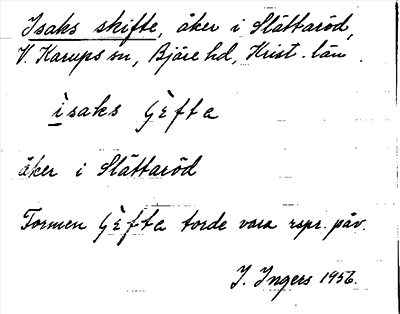 Isaks skifte, åker i Slättaröd,
V. Karups sn, Bjäre hd, Krist. län.
ìsaks ʃèfta
åker i Slättaröd
Formen ʃèfta torde vara rspr. påv.
I. Ingers 1956.